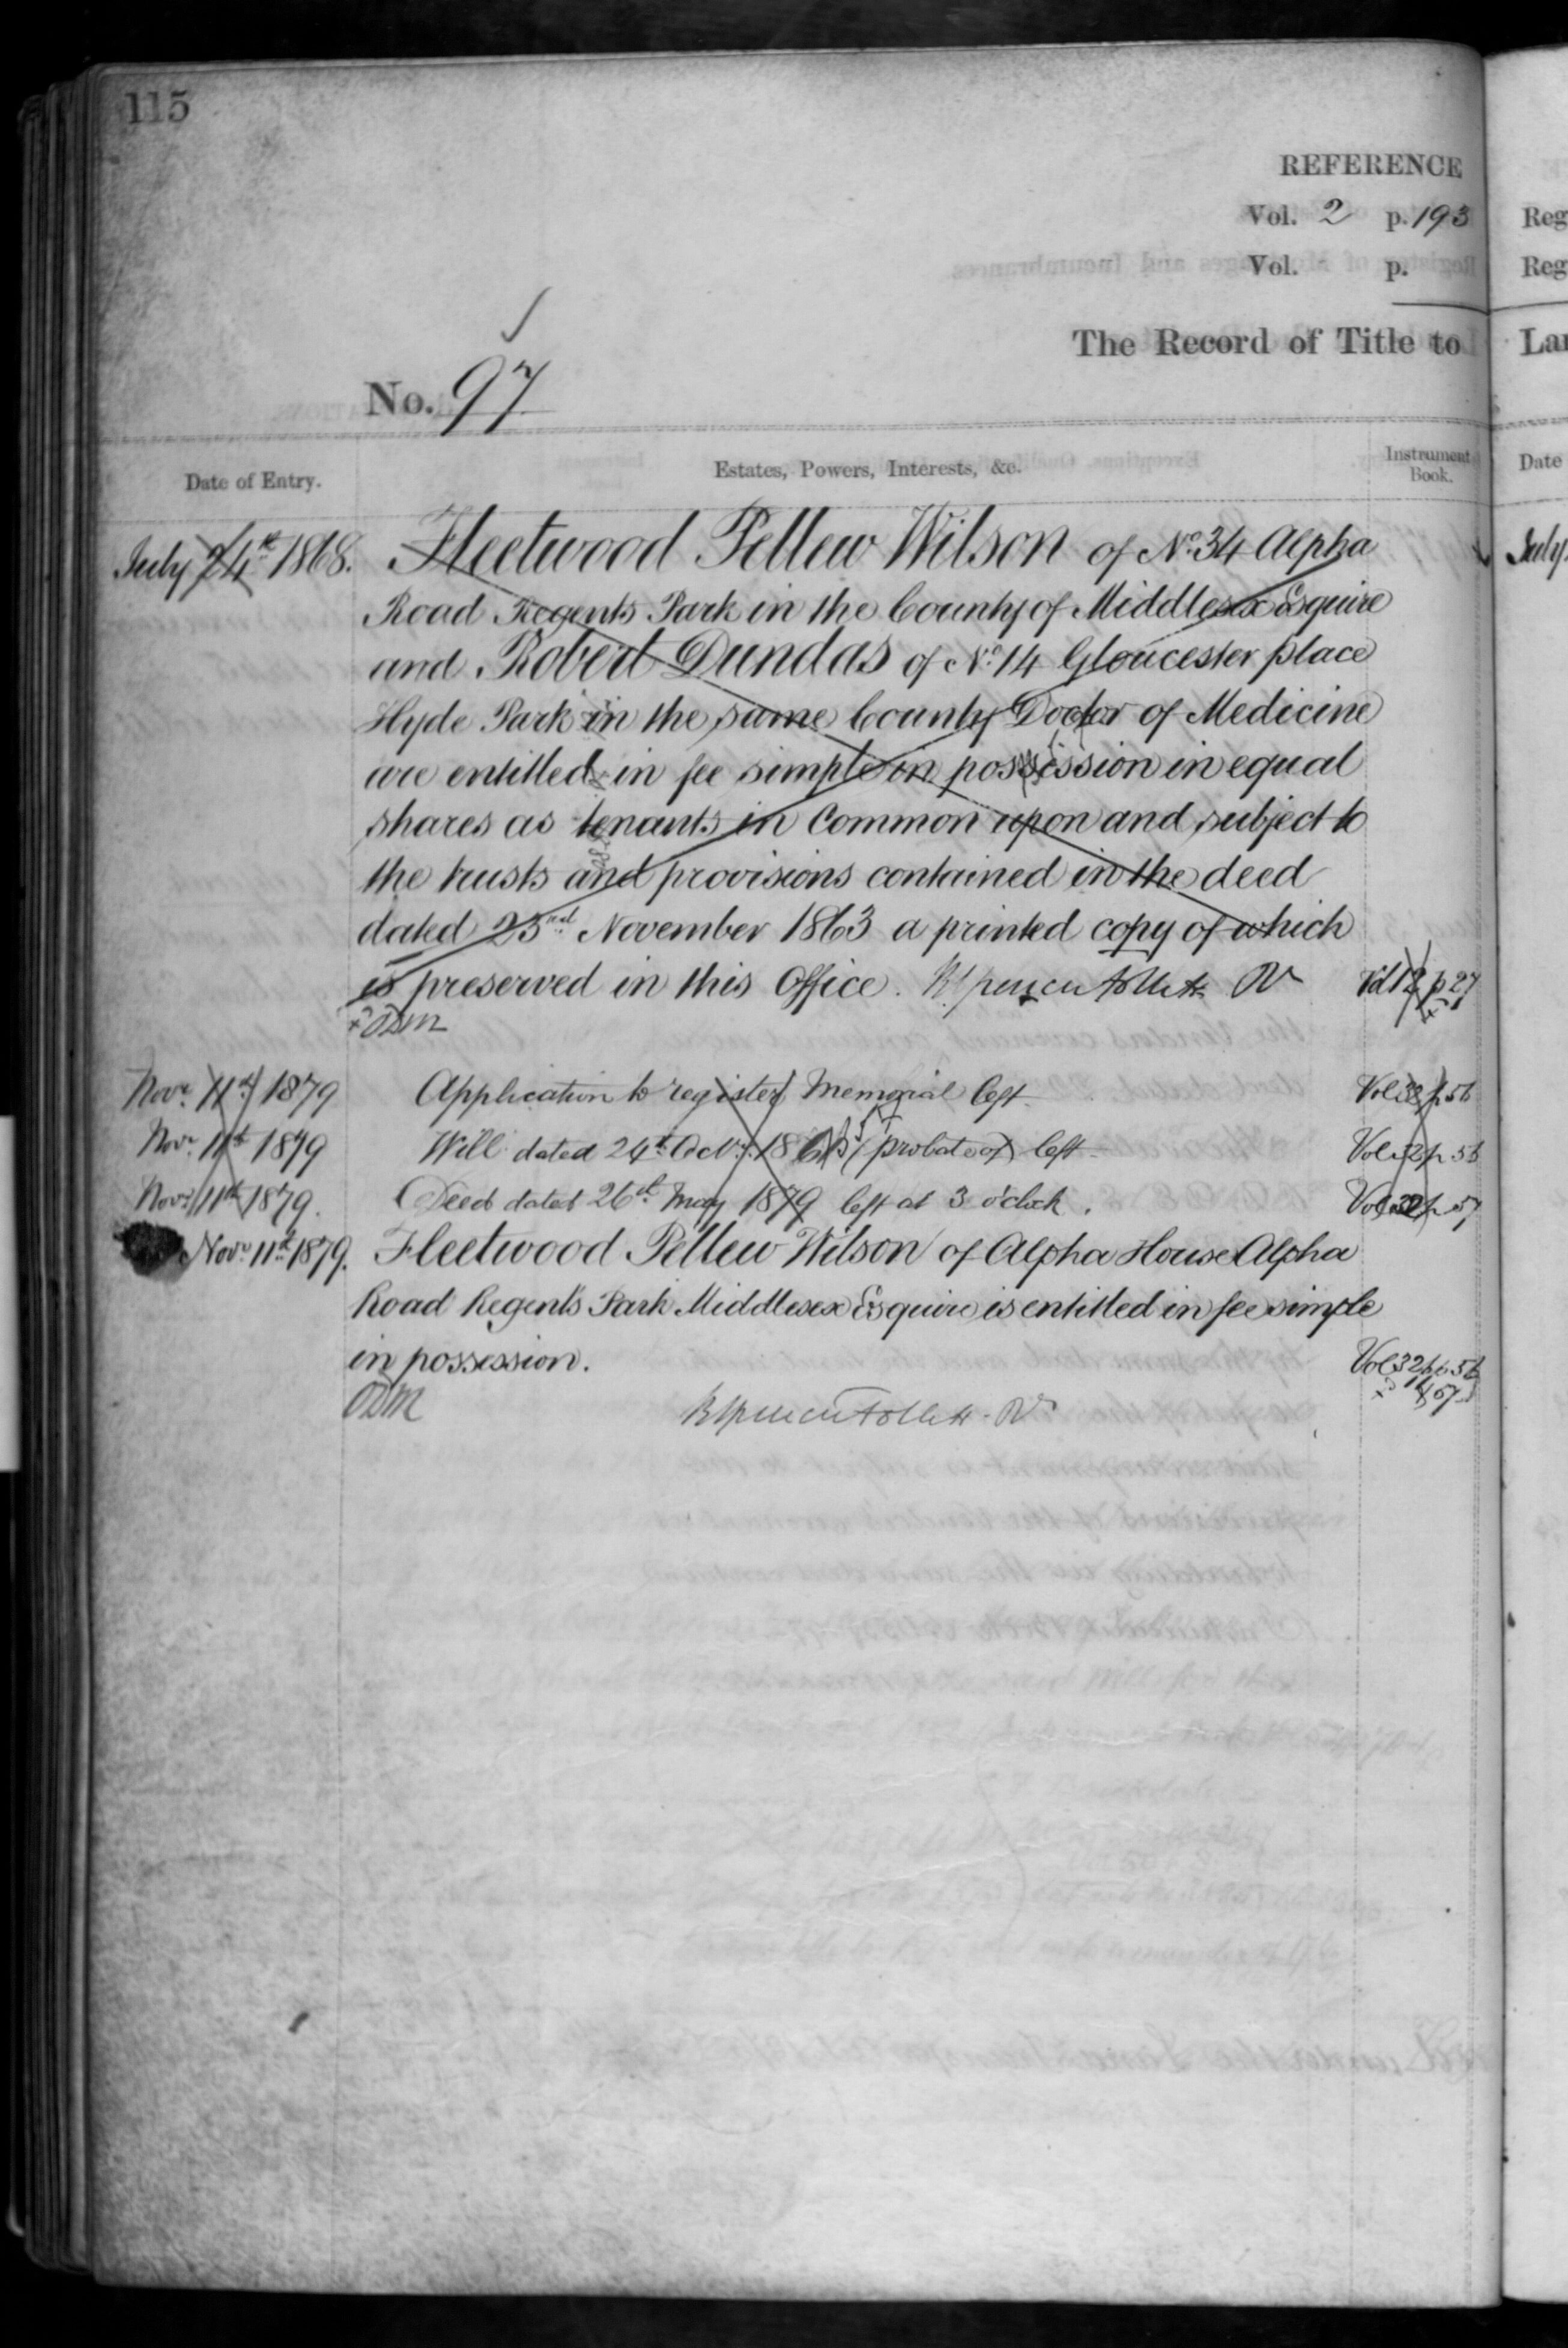 115
REFERENCE
Vol. 2 p. 193
Vol. p.
The Record of Title to
No. 97
Date of Entry.
Estates, Powers, Interests, &c.
Instrument Book.
July 24th 1868. Fleetwood Pellew Wilson of No. 34 Alpha
Road Regents Park in the County of Middlesex Esquire
and Robert Dundas of No. 14 Gloucester place
Hyde Park in the same County Doctor of Medicine
are entitled in fee simple in possession in equal
shares as tenants in Common upon and subject to
the trusts and provisions contained in the deed
dated 23rd November 1863 a printed copy of which
is preserved in this Office. Vol 12 p 27
Novr. 11th 1879 Application to register Memorial left. Vol 32 p. 56
Novr. 11th 1879 Will dated 24th Octr. (probate of) left Vol 32 p 56
Novr. 11th 1879. Deed dated 26th May 1879 left at 3 o'clock. Vol 32 p 57
Novr. 11th 1879. Fleetwood Pellew Wilson of Alpha House Alpha
Road Regent's Park Middlesex Esquire is entitled in fee simple
in possession. Vol 32 pp 56
57
Reg
Reg
Lan
Date
July